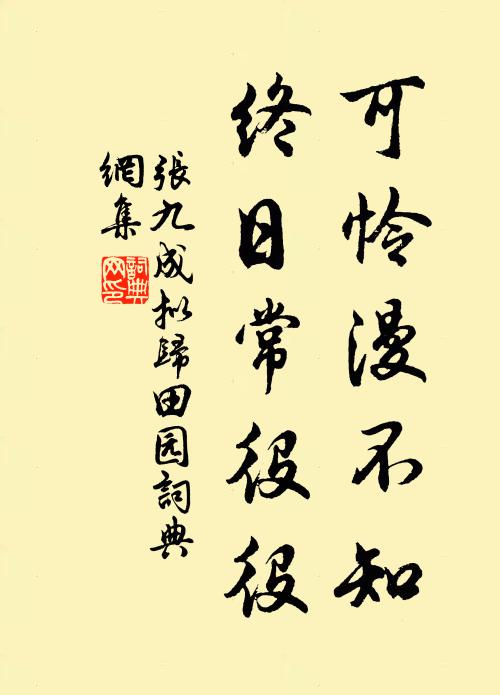 可怜漫不知
终日常役役
張九成拟歸田园詞典
網集
詞典
网印